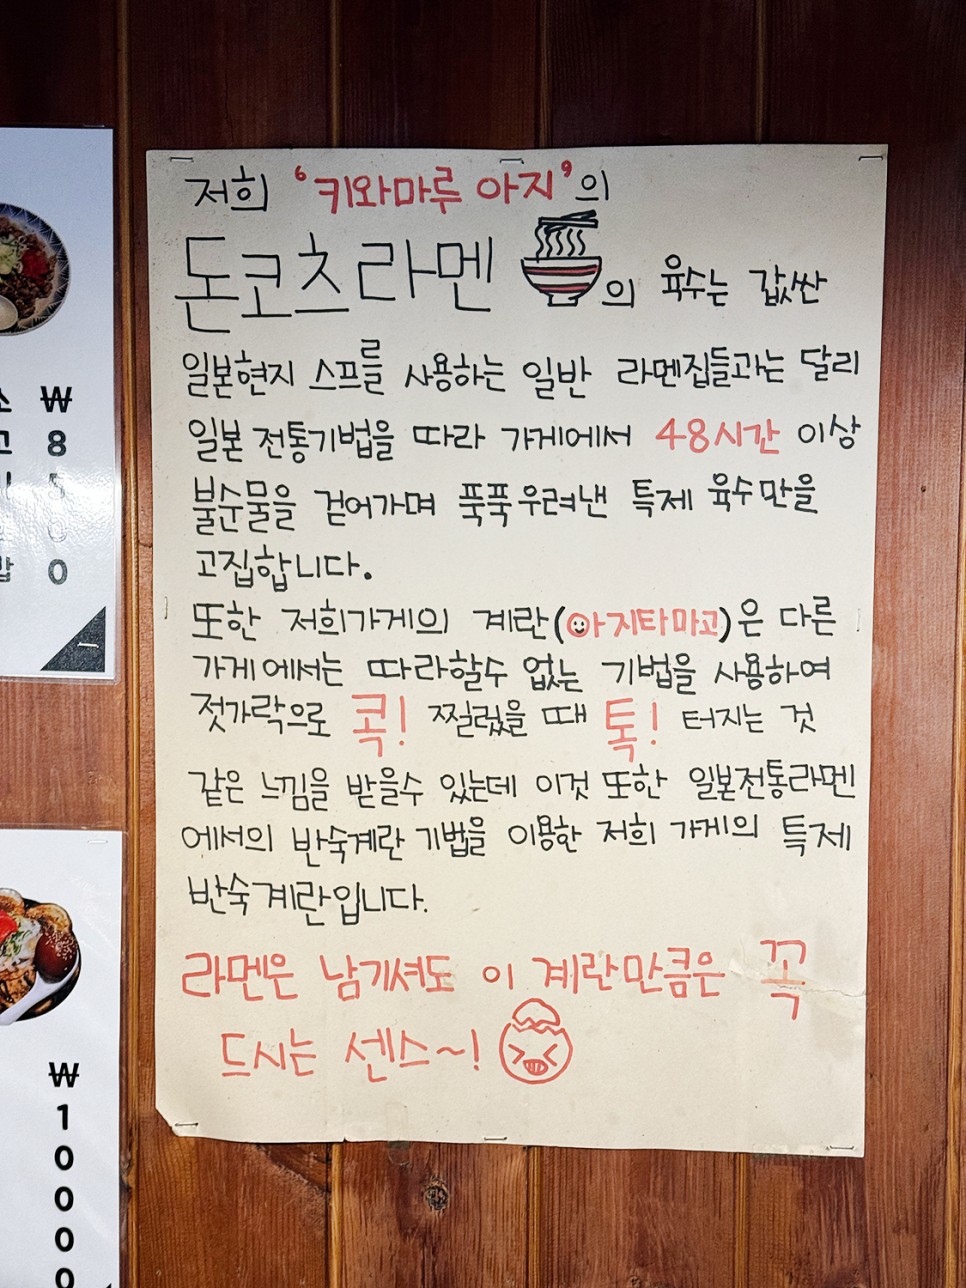 저희 '키와마루 아지'의
돈코츠라멘의 육수는 값싼
일본현지 스프를 사용하는 일반 라멘집들과는 달리
일본 전통기법을 따라 가게에서 48시간 이상
불순물을 걷어가며 푹푹 우려낸 특제 육수만을
고집합니다.
또한 저희가게의 계란(아지타마고)은 다른
가게에서는 따라할수 없는 기법을 사용하여
젓가락으로 콕! 찔렀을 때 톡! 터지는 것
같은 느낌을 받을수 있는데 이것 또한 일본전통라멘
에서의 반숙계란 기법을 이용한 저희 가게의 특제
반숙계란입니다.
라멘은 남기셔도 이 계란만큼은 꼭
드시는 센스~!
₩
8
5
0
0
₩
1
0
0
0
0